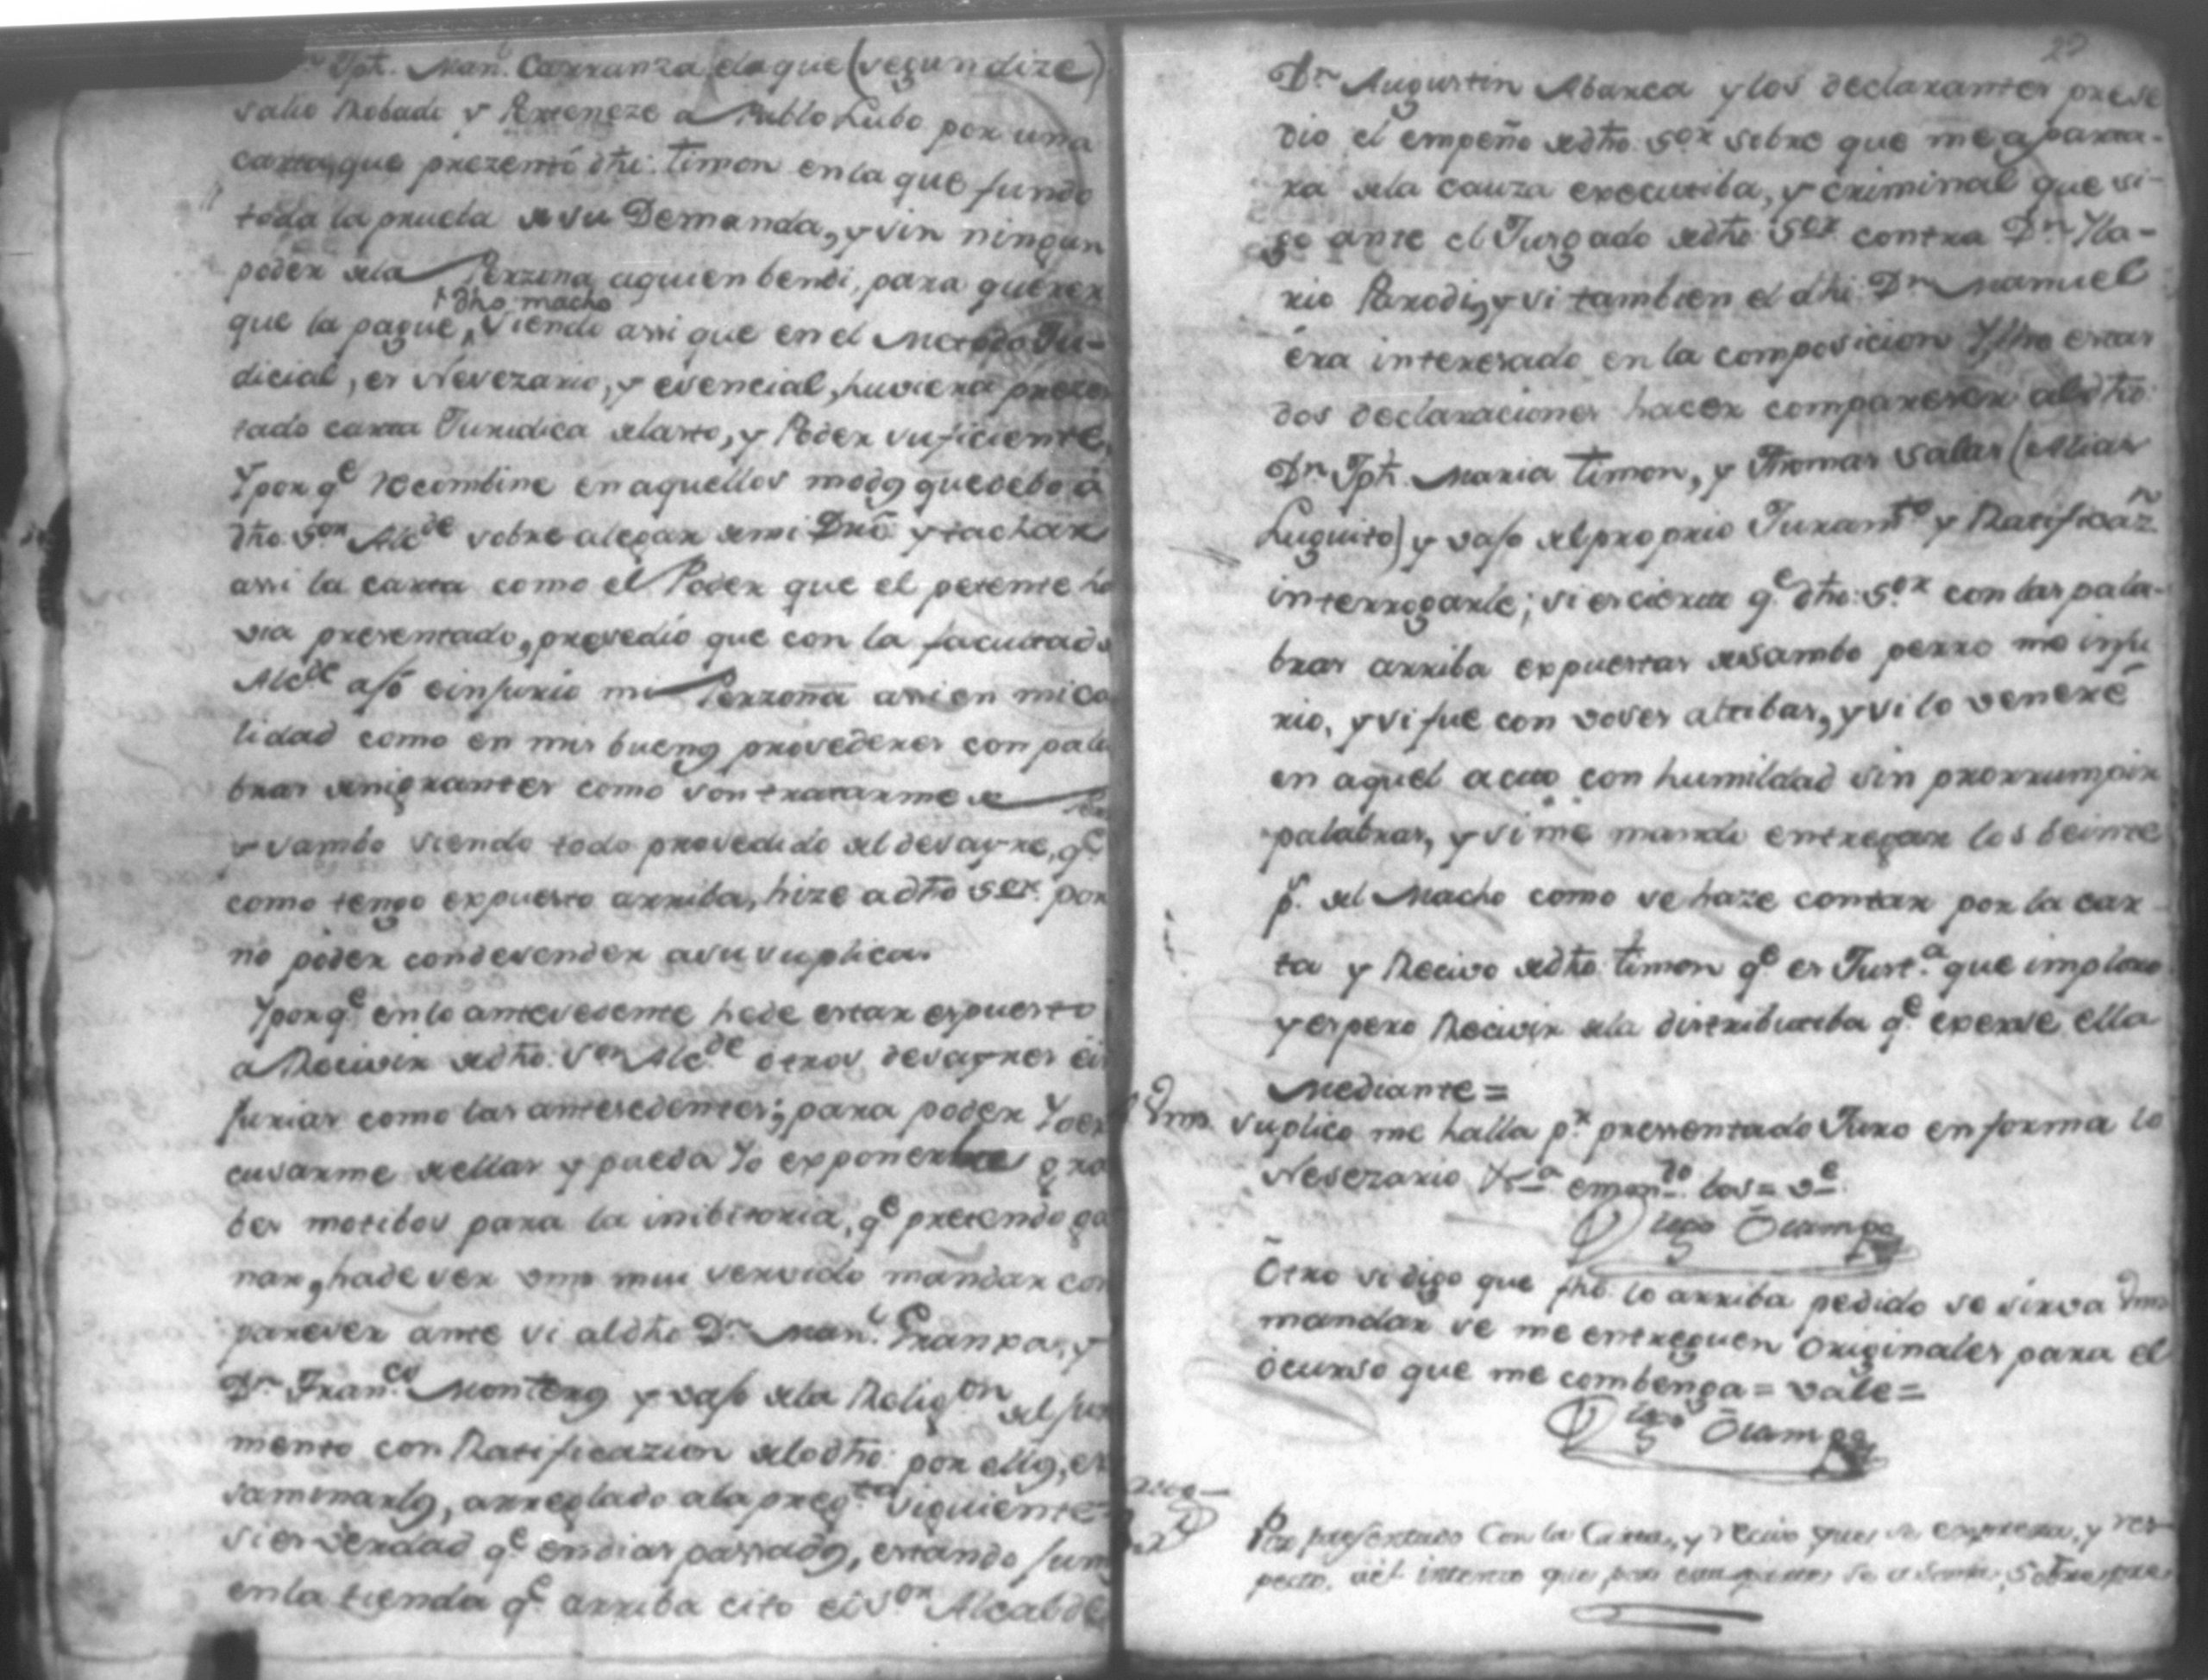 Jph. Man.l Carranza, el que (segun dize)
salio Robado y Perteneze a Pablo Lubo por una
carta, que prezentó dho. Timon en la que fundó
toda la prueba de su Demanda, y sin ningun
poder de la Perzona aquien bendi, para querer
dho macho
que la pague, siendo assi que en el Metodo Ju-
dicial, es Nesezario, y esencial, huviera prezen
tado carta Juridica, y Poder suficiente,
Y por q.e Recombine en aquellos modos que debo á
dho. S.or Alc.de sobre alegar de mi Dro. y tachar
assi la carta como el Poder que el petente ha
via presentado, prosedió que con la facultad de
Alc.de ajó e injurió mi Perzona assi en mi ca
lidad como en mis buenos prosederes con pala
bras denigrantes como son tratarme de Per
y sambo siendo todo prosedido del desayre, q.e
como tengo expuesto arriba, hize a dho S.or por
no poder condesender a su suplica.
Y por q.e en lo antesesente hede estar expuesto
a Recivir de dho. S.or Alc.de otros desayres e in
jurias como las antesedentes; para poder Yo es
cusarme de ellas y pueda Yo exponerlos gra
bes motibos para la inibitoria, q.e pretendo ga
nar, hade ser vmd mui servido mandar com
pareser ante si al dho D.n Man.l Grampa, y
D.n Fran.co Monteros y vajo de la Relig.on del jura
mento con Ratificazion de lo dho. por ellos, es
saminarlos, arreglado a la preg.ta siguiente
si es verdad q.e en dias passados, estando juntos
en la tienda q.e arriba cito el S.or Alcalde
22
D.n Augustin Abarca y los declarantes prese
dio el empeño de dho. S.or sobre que me aparta-
ra de la cauza executiba, y criminal que si-
go ante el Jusgado de dho S.or contra D.n Yla-
rio Parodi, y si tambien el dho. D.n Manuel
éra interesado en la composicion Y fha estas
dos declaraciones hacer compareser al dho.
D.n Jph. Maria Timon, y Thomas Salas (Alias
Luquito) y vajo del proprio Juram.to y Ratificaz.n
interrogarle; si es cierto q.e dho: S.or con las pala-
bras arriba expuestas de sambo perro me inju
rió, y si fue con voses altibas, y si lo veneré
en aquel acto con humildad sin prorrumpir
palabras, y si me mandó entregar los beinte
p.s del Macho como se haze contar por la car
ta y Recivo de dho. Timon q.e es Just.a que imploro
y espero Recivir de la distributiba q.e exerse ella
Mediante =
A Vmd. suplico me halla p.r pressentado Juro en forma lo
Nesezario &.a emen.do los = v.e
Diego Ocampo
Otro si digo que fho. lo arriba pedido se sirva Vmd
mandar se me entreguen Originales para el
ocurso que me combenga = vale =
Diego Ocampo
Por presentado Con la Carta, y recivo que se expresa, y res
pecto, del intento que por esta parte se